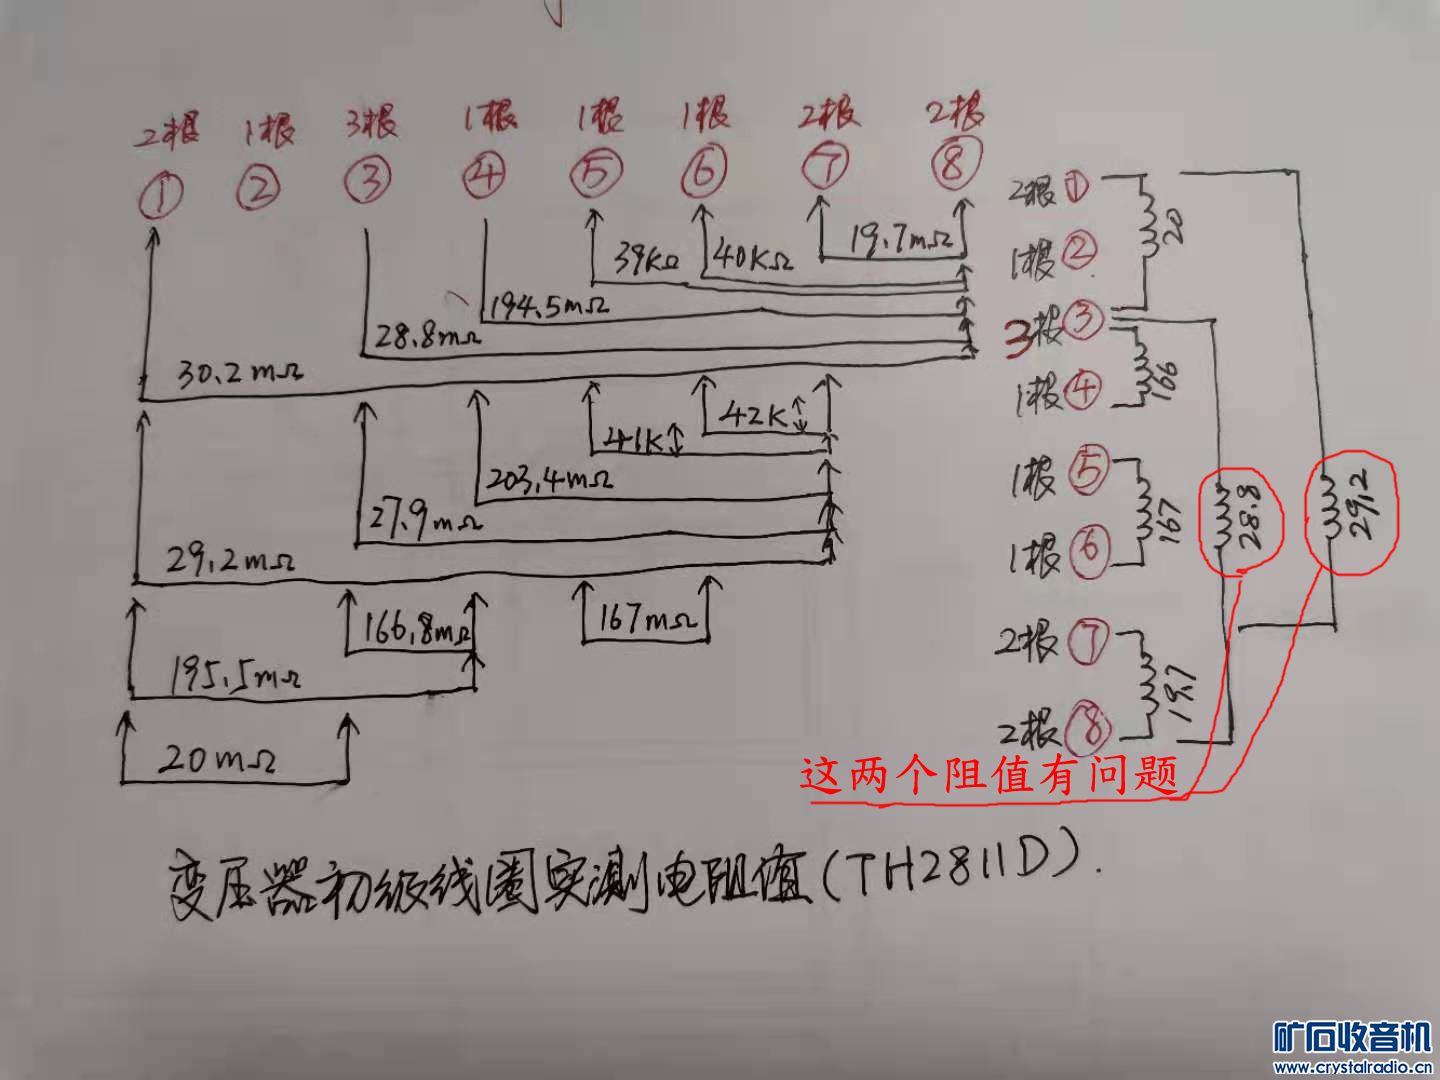 2根 1根 3根 1根 1根 1根 2根 2根
① ② ③ ④ ⑤ ⑥ ⑦ ⑧
39KΩ 40KΩ 19.7mΩ
194.5mΩ
28.8mΩ
30.2mΩ
41K↕ 42K↕
203.4mΩ
27.9mΩ
29.2mΩ
166.8mΩ 167mΩ
195.5mΩ
20mΩ
2根①
20
1根②
3根③
166
1根④
1根⑤
167
28.8
29.2
1根⑥
2根⑦
19.7
2根⑧
这两个阻值有问题
变压器初级线圈实测电阻值(TH2811D).
矿石收音机
www.crystalradio.cn